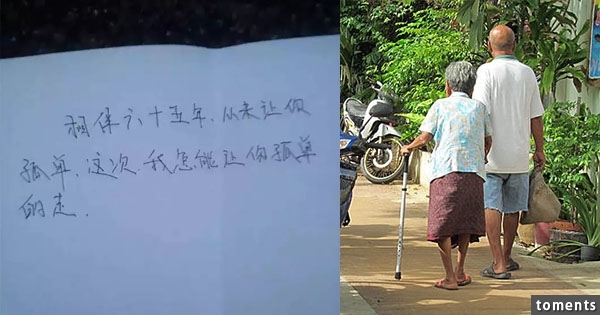 相保六十五年，从未让你
孤单，这次我怎能让你孤单
的走.
toments